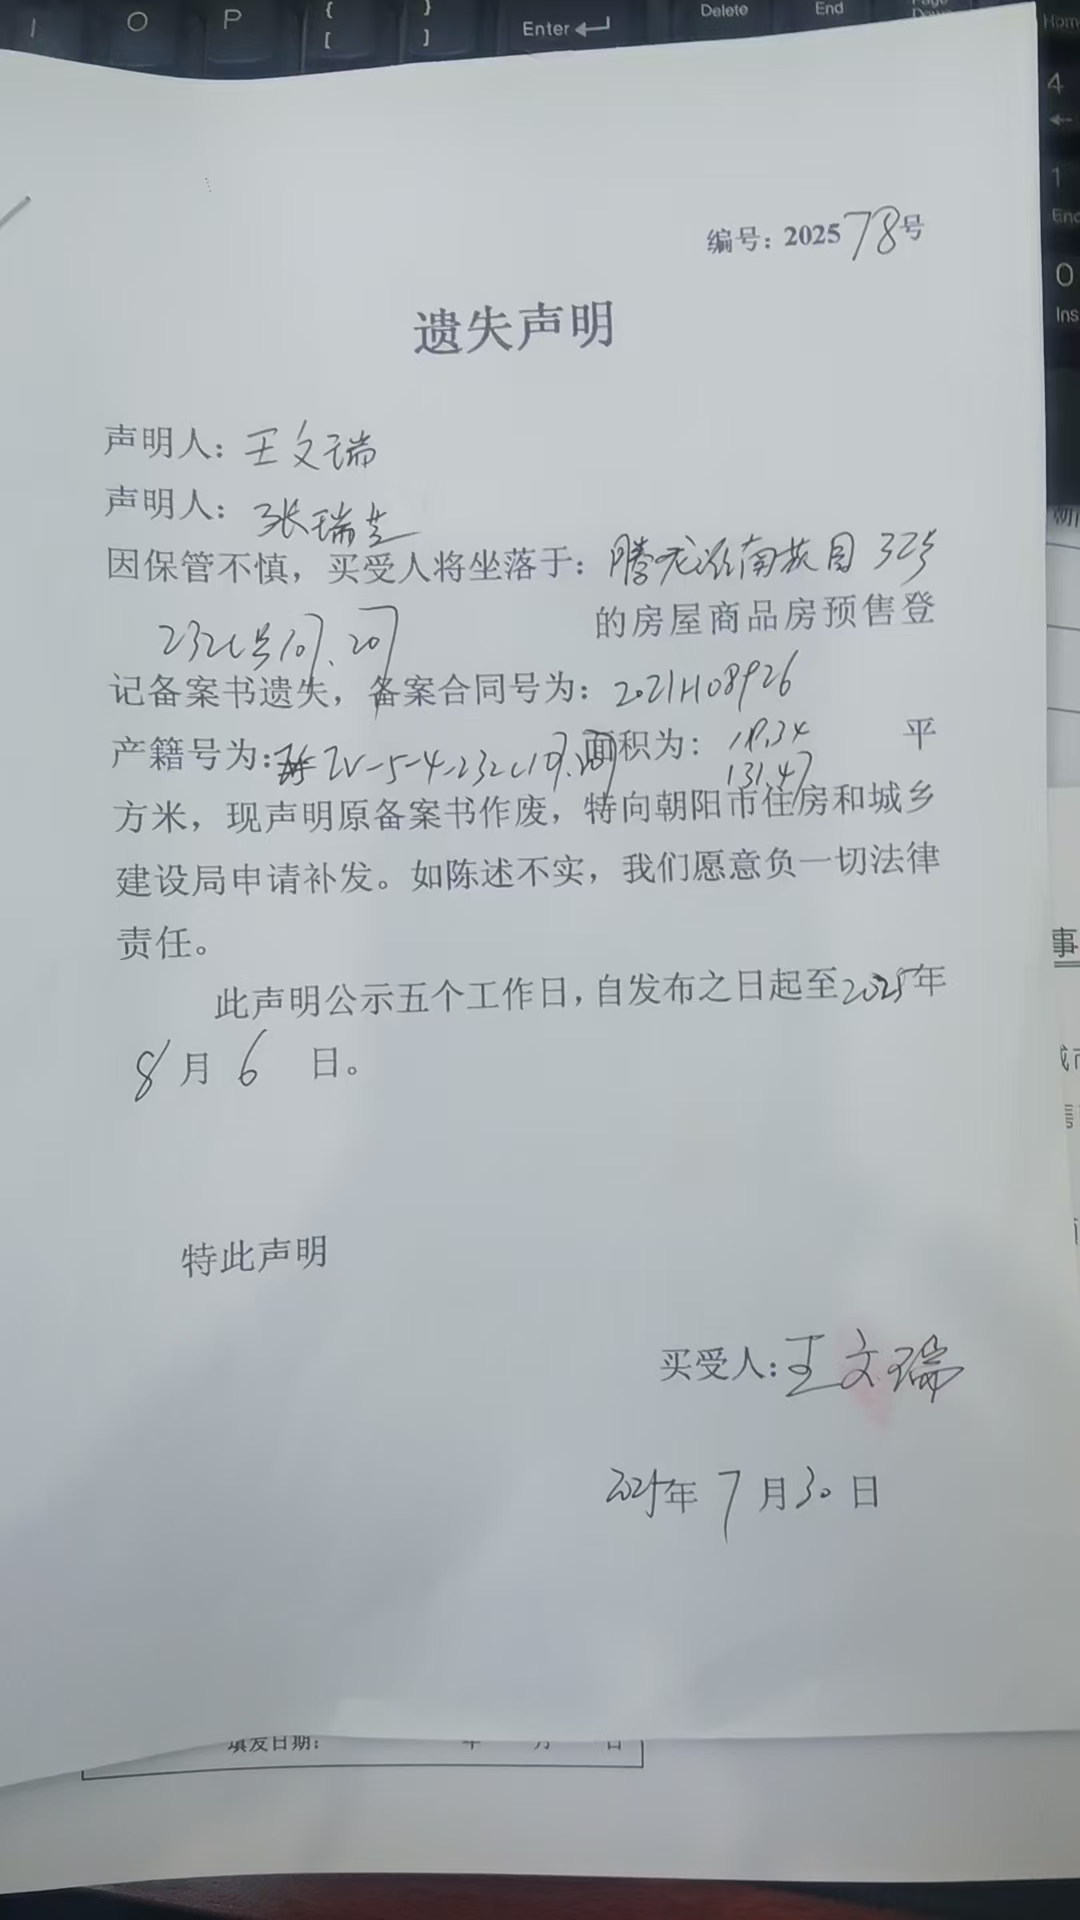 O P { [ } ] Enter Delete End
Home
4
1
End
0
Ins
编号：202578号
遗失声明
声明人：王文瑞
声明人：张瑞芝
因保管不慎，买受人将坐落于：腾龙 南苑
的房屋商品房预售登
记备案书遗失，备案合同号为：2021H108926
产籍号为: IV-5-4-232 面积为： 平
131.47
方米，现声明原备案书作废，特向朝阳市住房和城乡
建设局申请补发。如陈述不实，我们愿意负一切法律
责任。
此声明公示五个工作日，自发布之日起至2025年
8月6日。
特此声明
买受人：王文瑞
2025年7月30日
填发日期： 年 月 日
事